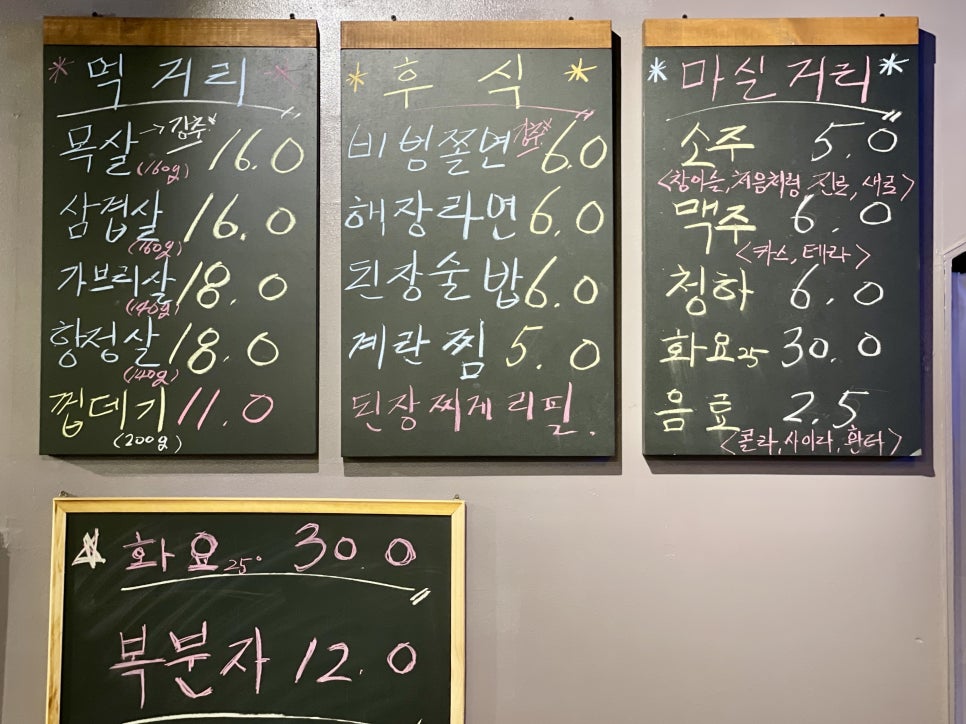 * 먹거리 *
목살 → 강추* 16.0
(160g)
삼겹살 16.0
(160g)
가브리살 18.0
(140g)
항정살 18.0
(140g)
껍데기 11.0
(200g)
* 후식 *
비빔쫄면 강추* 6.0
해장라면 6.0
된장술밥 6.0
계란찜 5.0
된장찌게 리필.
* 마실거리 *
소주 5.0
<참이슬, 처음처럼, 진로, 새로>
맥주 6.0
<카스, 테라>
청하 6.0
화요25 30.0
음료 2.5
<콜라, 사이다, 환타>
화요25° 30.0
복분자 12.0